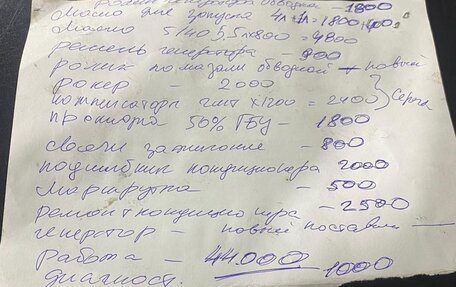 ролик генератора обводной - 1800
Масло для запуска 4л+1л=1800+400
Масло 5/40 5,5х800 = 4800
ремень генератора - 900
ролик помазали обводной новый
рокер - 2000
компенсаторы 2шт х1200 = 2400 } Серёга
проставка 50% ГБУ - 1800
свечи зажигания - 800
подшибник кондиционера 2000
маршрутка - 500
ремонт кондиционера - 2500
генератор - новый поставили
Работа - 44.000
диагност. - 1000